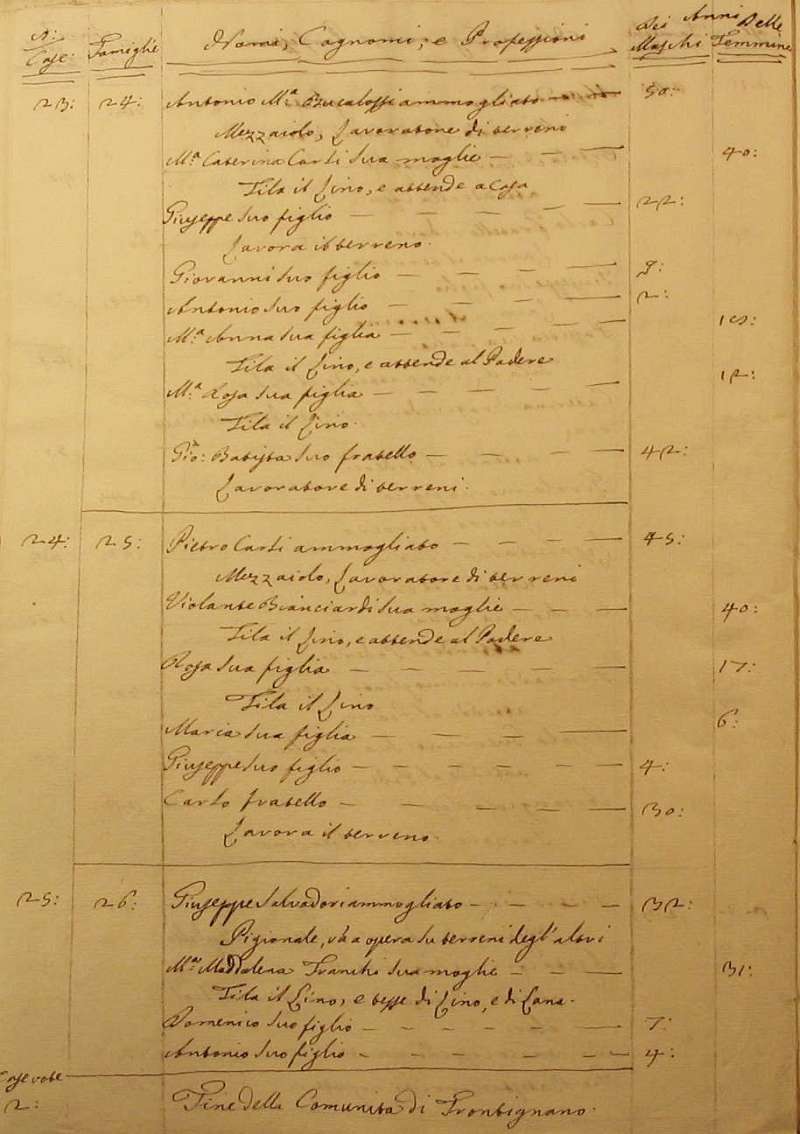 N: Case: Famiglie Nomi, Cognomi, e Professioni Anni Dei Maschi Delle Femmine
23: 24: Antonio M.ª Bucalossi ammogliato 50:
Mezzaiolo, Lavoratore di terreni
M.ª Caterina Corti sua moglie 40:
Fila il Lino, e attende a Casa
Giuseppe suo figlio 22:
Lavora il terreno.
Giovanni suo figlio
Antonio suo figlio 2:
M.ª Anna sua figlia
Fila il Lino, e attende al Podere
M.ª Rosa sua figlia 12:
Fila il Lino.
Gio: Batista suo fratello 42:
Lavoratore di terreni.
24: 25: Pietro Corti ammogliato 45:
Mezzaiolo, Lavoratore di terreni
Violante Bianciardi sua moglie 40:
Fila il Lino, e attende al Podere
Rosa sua figlia 17:
Fila il Lino
Maria sua figlia 6:
Giuseppe suo figlio 4:
Carlo fratello 30:
Lavora il terreno.
25: 26: Giuseppe Salvadori ammogliato 32:
Pigionale, và a opera su terreni degl'altri
M.ª Maddalena Franchi sua moglie 31:
Fila il Lino, e tesse di Lino, e di Lana.
Domenico suo figlio 7:
Antonio suo figlio 4:
Case vote
2: Fine della Comunita di Frontignano.